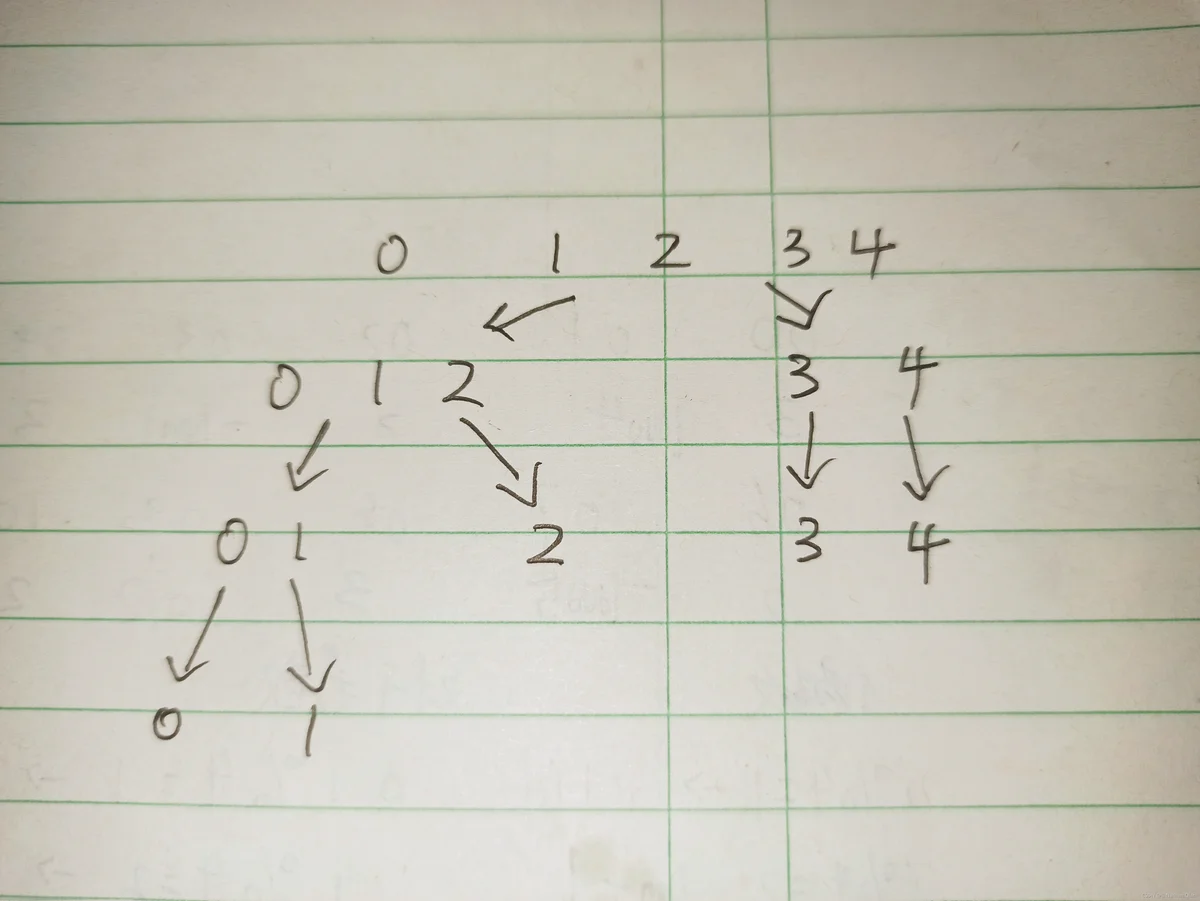 0 1 2 3 4
0 1 2 3 4
0 1 2 3 4
0 1